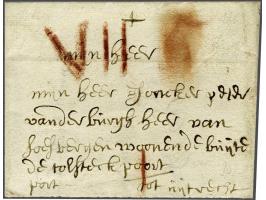 VII
mijn heer
mijn heer Joncker peter
vanderburgh heer van
woonende buijte
de tolsteck poort
port tot uijtrecht